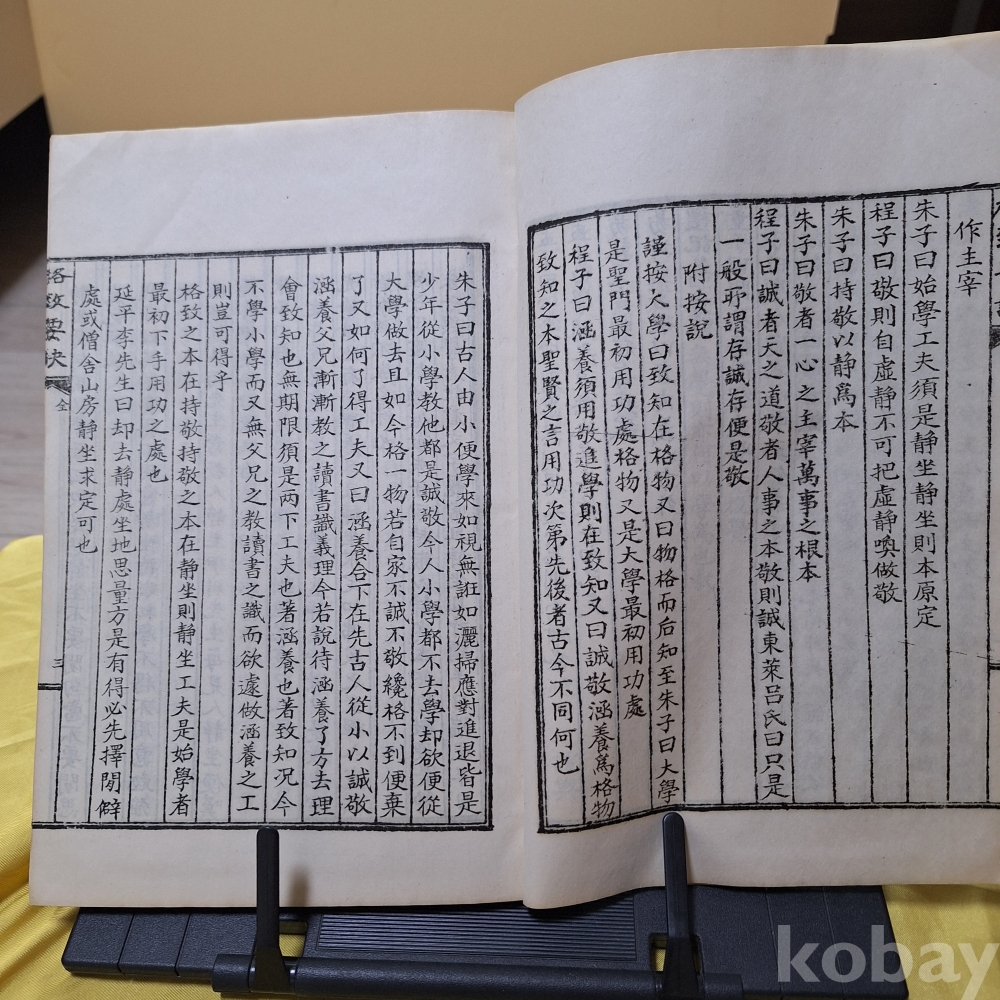 作主宰
朱子曰始學工夫須是靜坐靜坐則本原定
程子曰敬則自虛靜不可把虛靜喚做敬
朱子曰持敬以靜爲本
朱子曰敬者一心之主宰萬事之根本
程子曰誠者天之道敬者人事之本敬則誠東萊呂氏曰只是
一般所謂存誠存便是敬
附按說
謹按大學曰致知在格物又曰物格而后知至朱子曰大學
是聖門最初用功處格物又是大學最初用功處
程子曰涵養須用敬進學則在致知又曰誠敬涵養爲格物
致知之本聖賢之言用功次第先後者古今不同何也
朱子曰古人由小便學來如視無誑如灑掃應對進退皆是
少年從小學教他都是誠敬今人小學都不去學却欲便從
大學做去且如今格一物若自家不誠不敬纔格不到便棄
了又如何了得工夫又曰涵養合下在先古人從小以誠敬
涵養父兄漸漸教之讀書識義理今若說待涵養了方去理
會致知也無期限須是兩下工夫也著涵養也著致知况今
不學小學而又無父兄之教讀書之識而欲遽做涵養之工
則豈可得乎
格致之本在持敬持敬之本在靜坐則靜坐工夫是始學者
最初下手用功之處也
延平李先生曰却去靜處坐地思量方是有得必先擇閒僻
處或僧舍山房靜坐求定可也
格致要訣 全 三
kobay